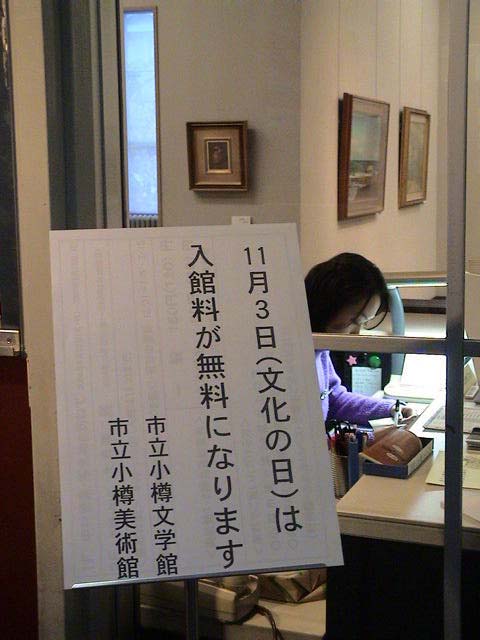 11月3日(文化の日)は
入館料が無料になります
市立小樽文学館
市立小樽美術館